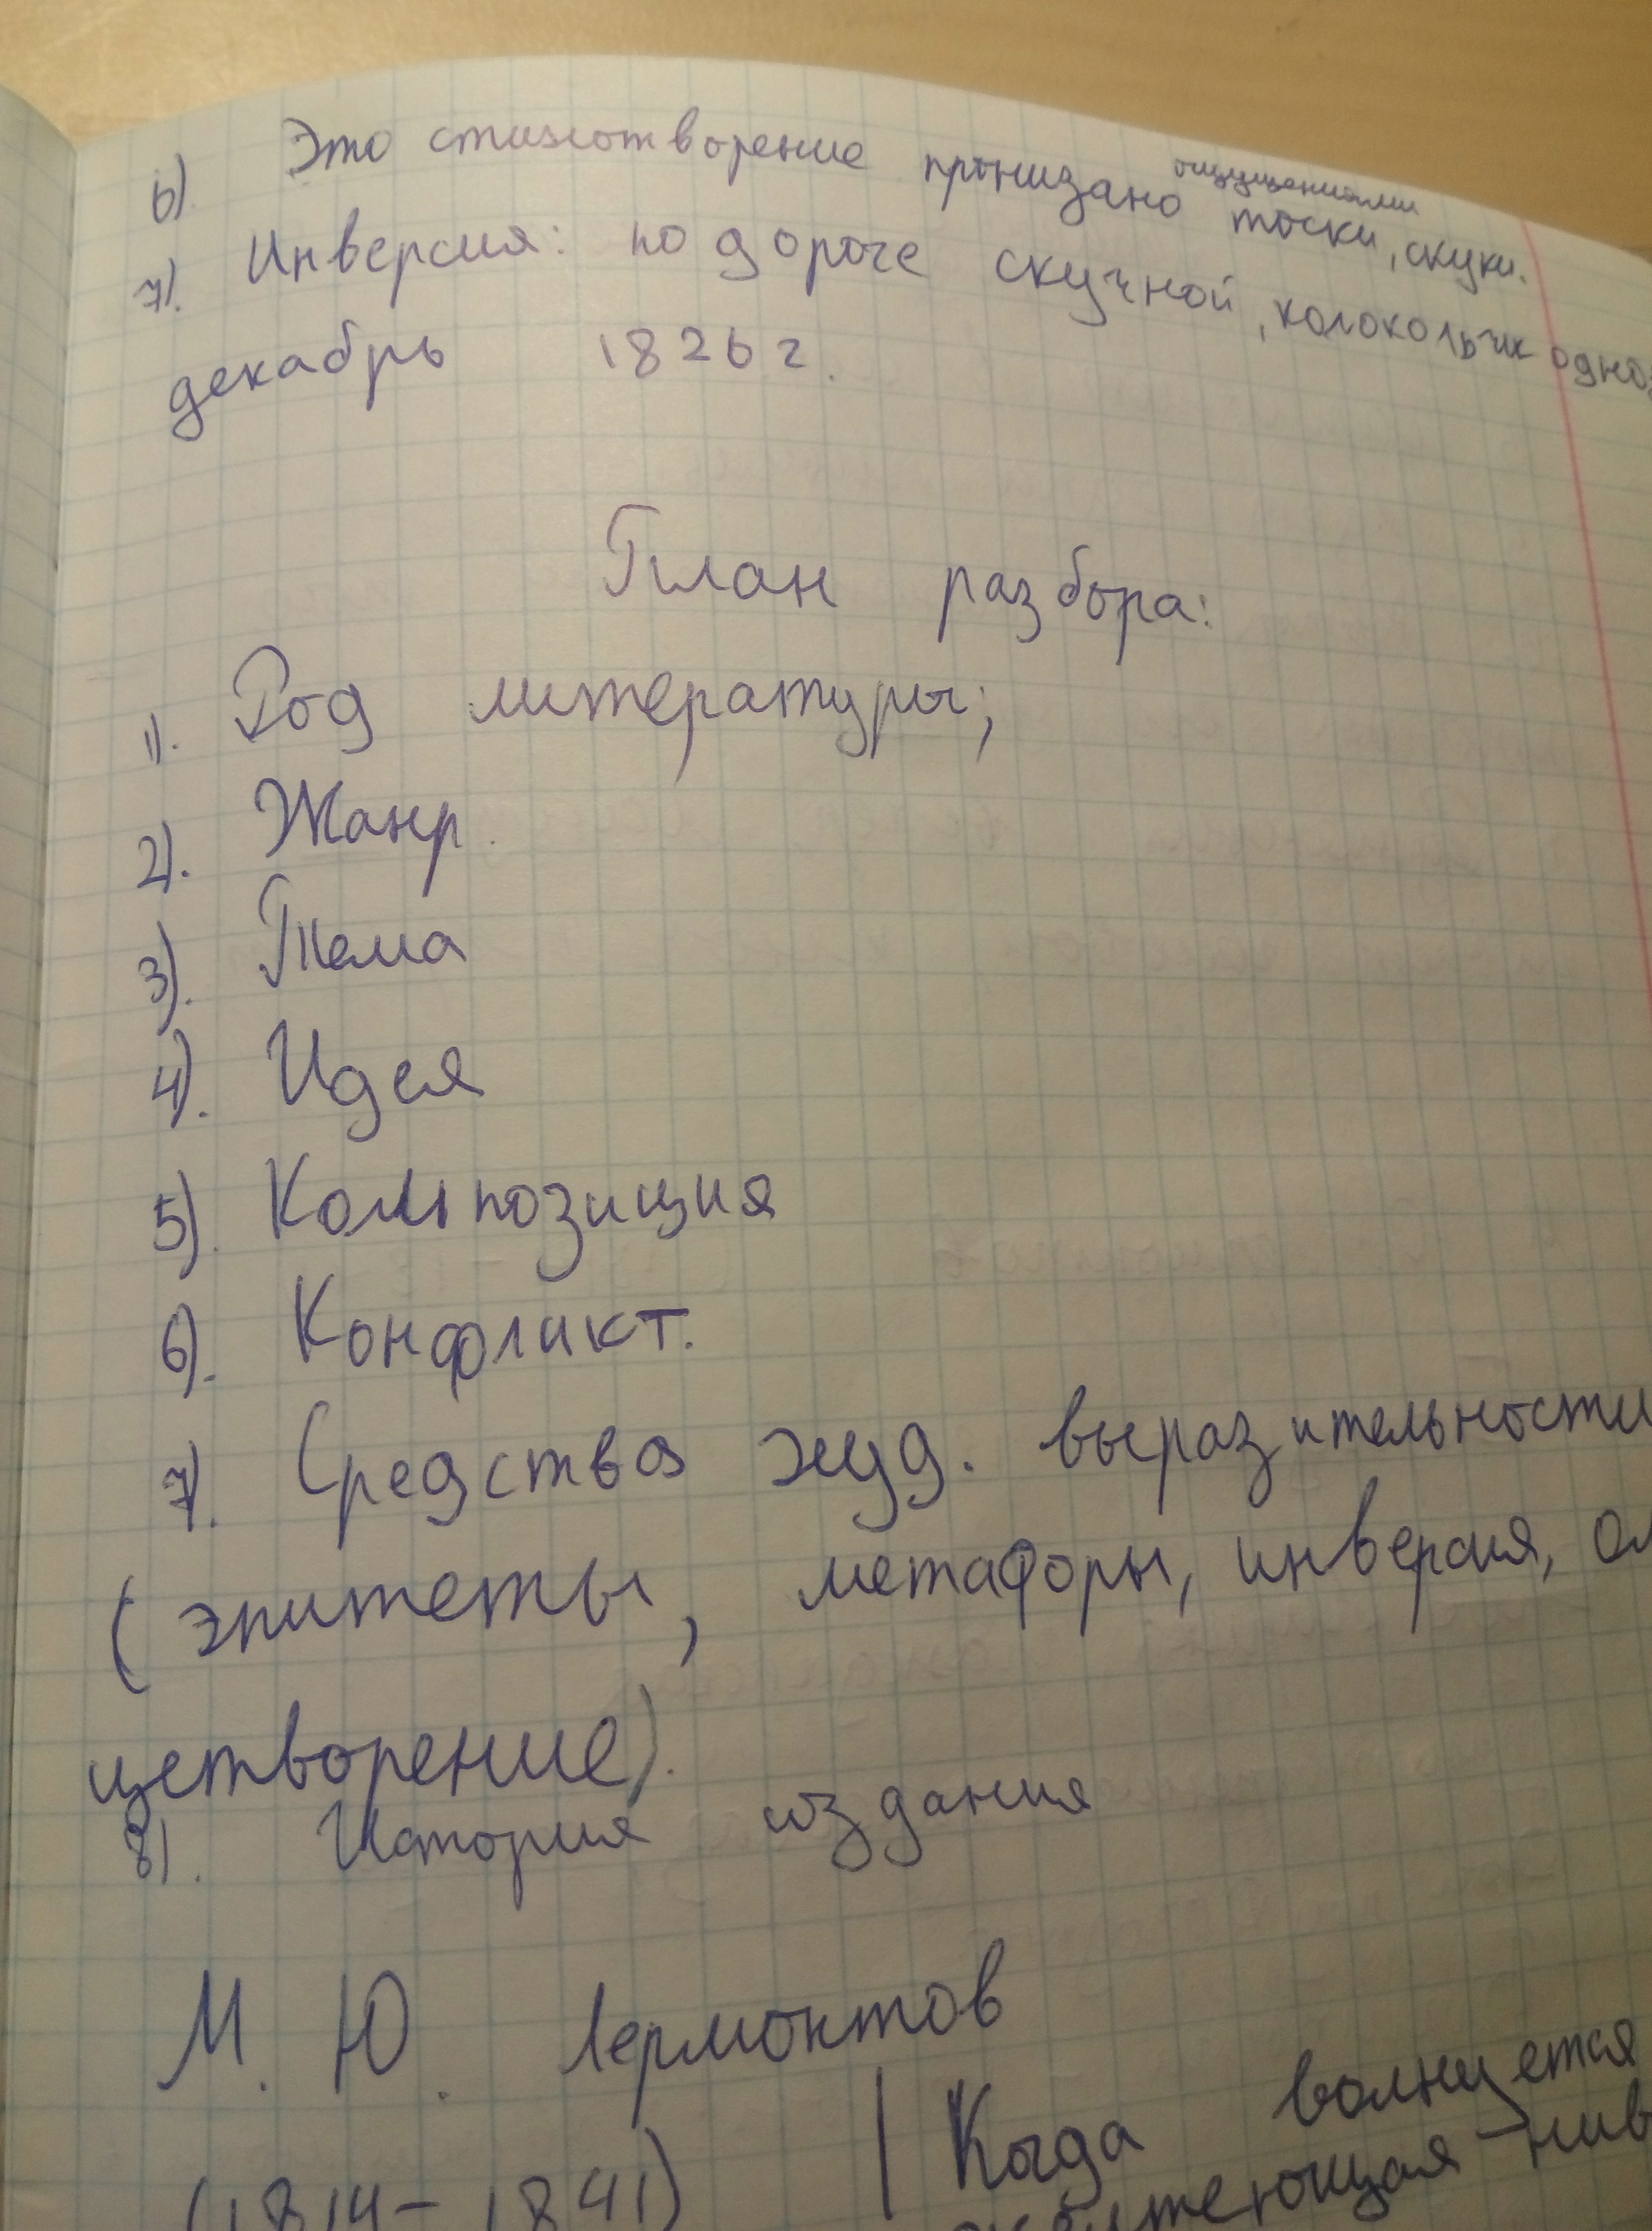 6) Это стихотворение пронизано ощущениями тоски, скуки.
7). Инверсия: по дороге скучной, колокольчик одноз
декабрь 1826 г.
План разбора:
1). Род литературы;
2). Жанр.
3). Тема
4). Идея
5). Композиция
6). Конфликт.
7). Средства худ. выразительности
(эпитеты, метафоры, инверсия, ол
цетворение).
8). История издания
М. Ю. Лермонтов
(1814-1841) | Когда волнуется
желтеющая нив